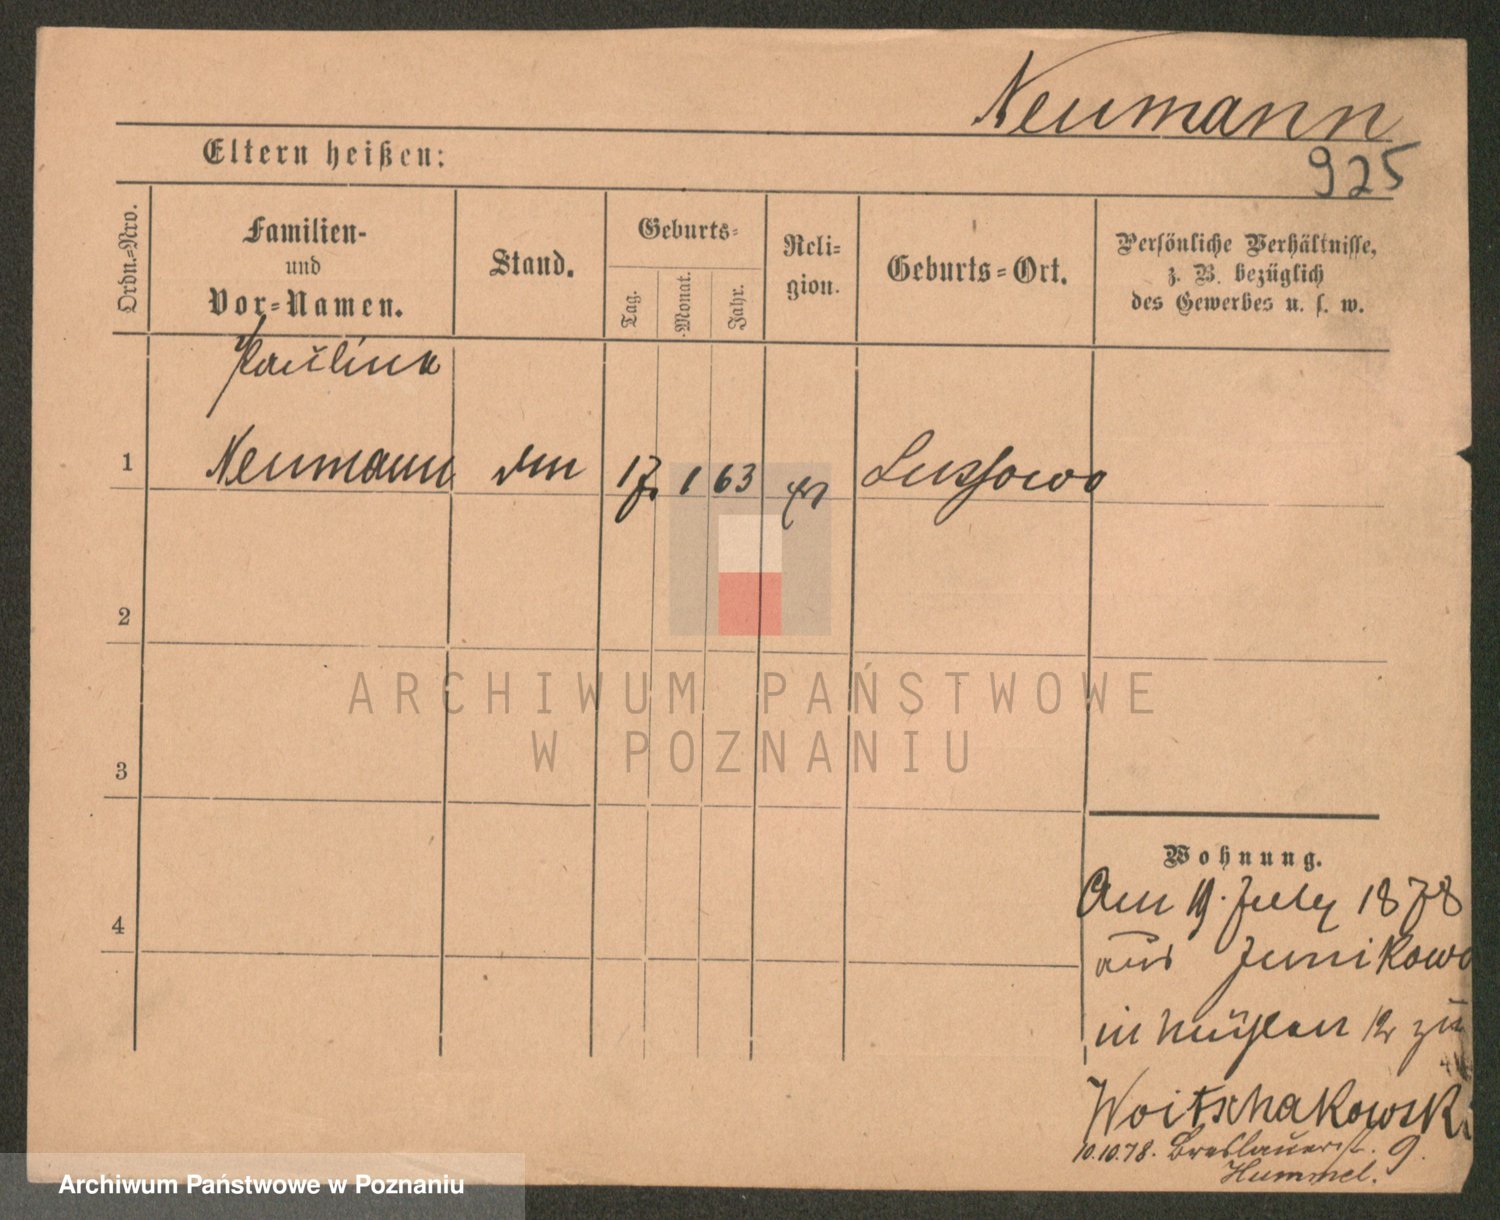 Neumann
925
Eltern heißen:
Ordn.-Nro.
Familien-
und
Vor-Namen.
Stand.
Geburts-
Tag.
Monat.
Jahr.
Reli-
gion.
Geburts-Ort.
Persönliche Verhältnisse,
z. B. bezüglich
des Gewerbes u. s. w.
Paulina
1 Neumann 17. 1 63 Lussowo
2
3
4
Wohnung.
Am 19. July 1878
aus Junikowo
in Mühlen 12 zu
Woitschakowski
10.10.78. Breslauerst. 9.
Hummel.
ARCHIWUM PAŃSTWOWE
W POZNANIU
Archiwum Państwowe w Poznaniu